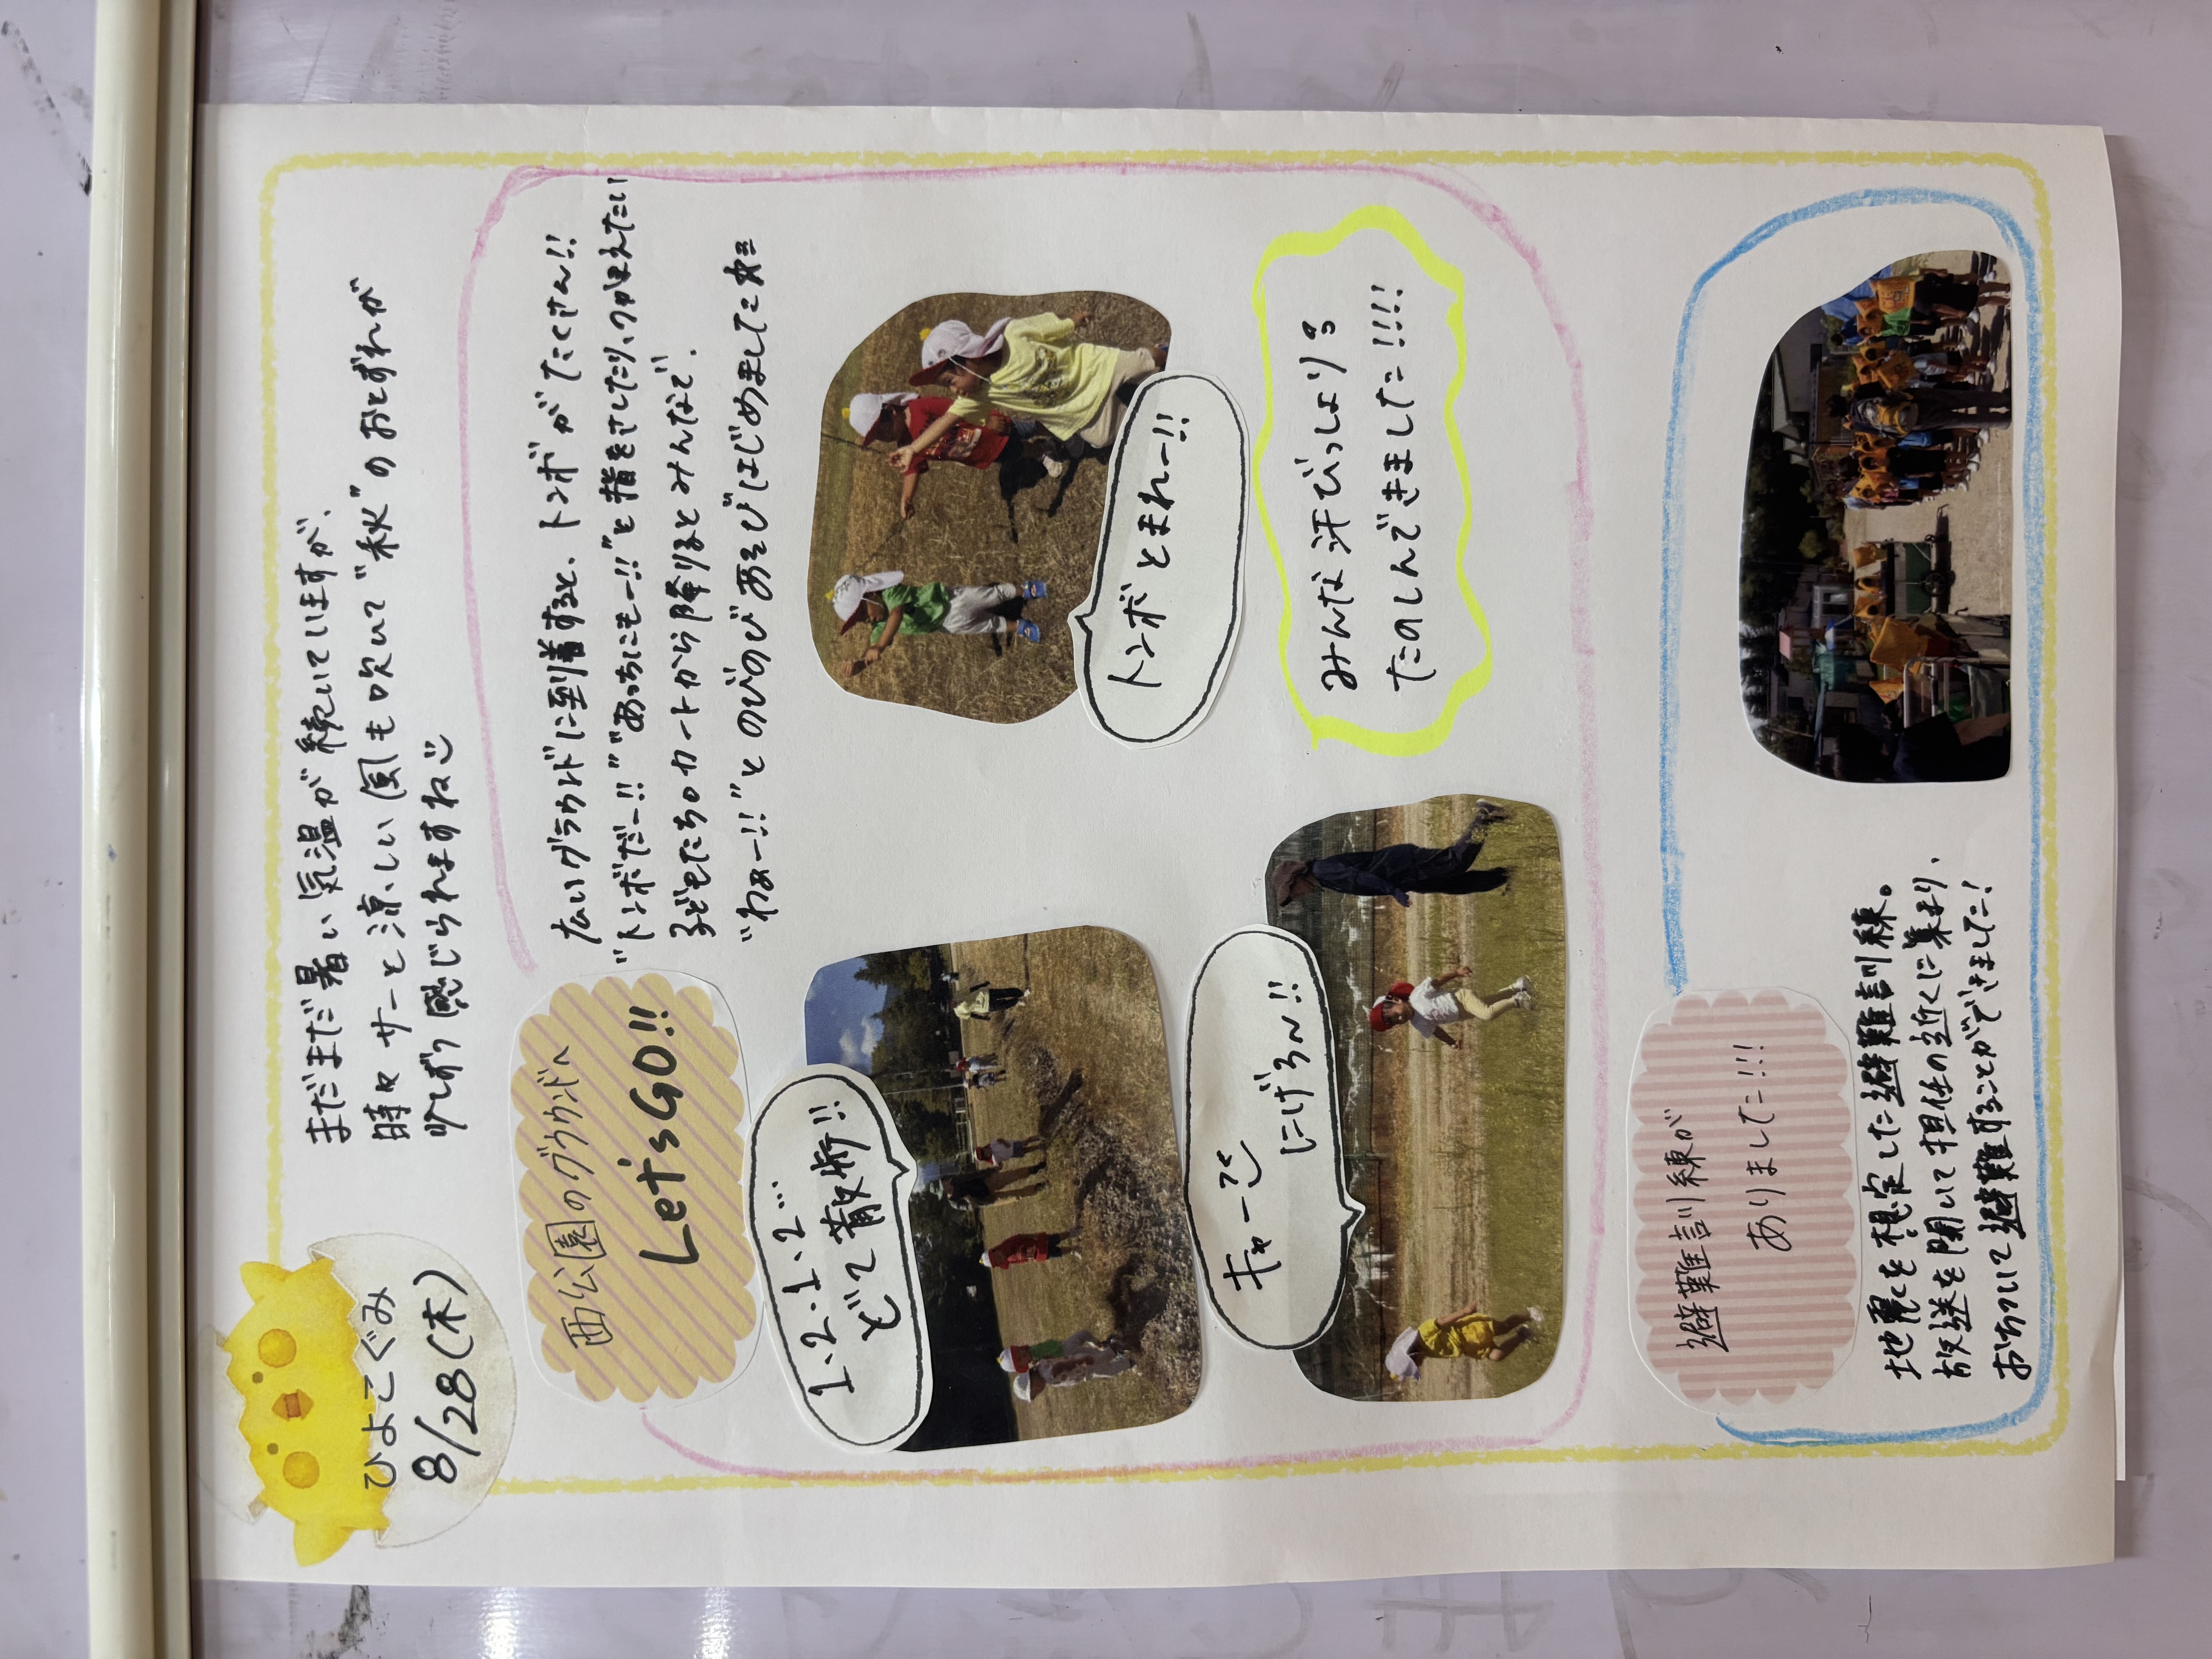 ひよこぐみ
8/28(木)
まだまだ暑い気温が続いていますが、
時々サーと涼しい風も吹いて"秋"のおとずれが
少しずつ感じられますね
西公園のグラウンドへ
Let's GO!!
広いグラウンドに到着すると、トンボがたくさん!!
"トンボだー!!""あっちにもー!!"と指をさしたり、つかまえたい
子どもたち。カートから降りるとみんなで、
"わぁー!!"とのびのびあそびはじめました
1.2.1.2...
どて散歩!!
トンボとまれー!!
キャー
にげろ〜!!
みんな汗びっしょり
たのしんできました!!!!
避難訓練が
ありました!!!
地震を想定した避難訓練。
放送を聞いて担任の近くに集まり、
おちついて避難することができました!